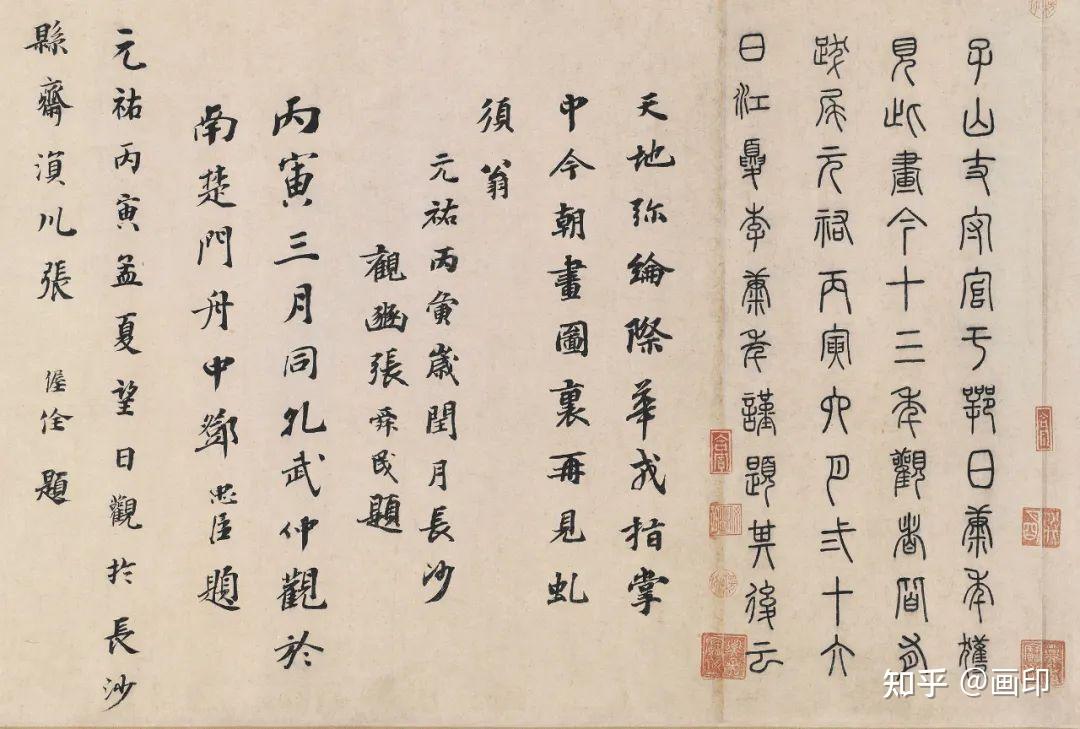 子山支官于鄂日康年獲
見此畫今十三年觀者間有
跋尾元祐丙寅六月弍十六
日江夏李康年謹題其後云
天地弥綸際華戎指掌
中今朝畫圖裏再見虬
須翁
元祐丙寅歲閏月長沙
觀豳張舜民題
丙寅三月同孔武仲觀於
南楚門舟中鄧忠臣題
元祐丙寅孟夏望日觀於長沙
縣齋湏川張偓佺題
知乎 @画印